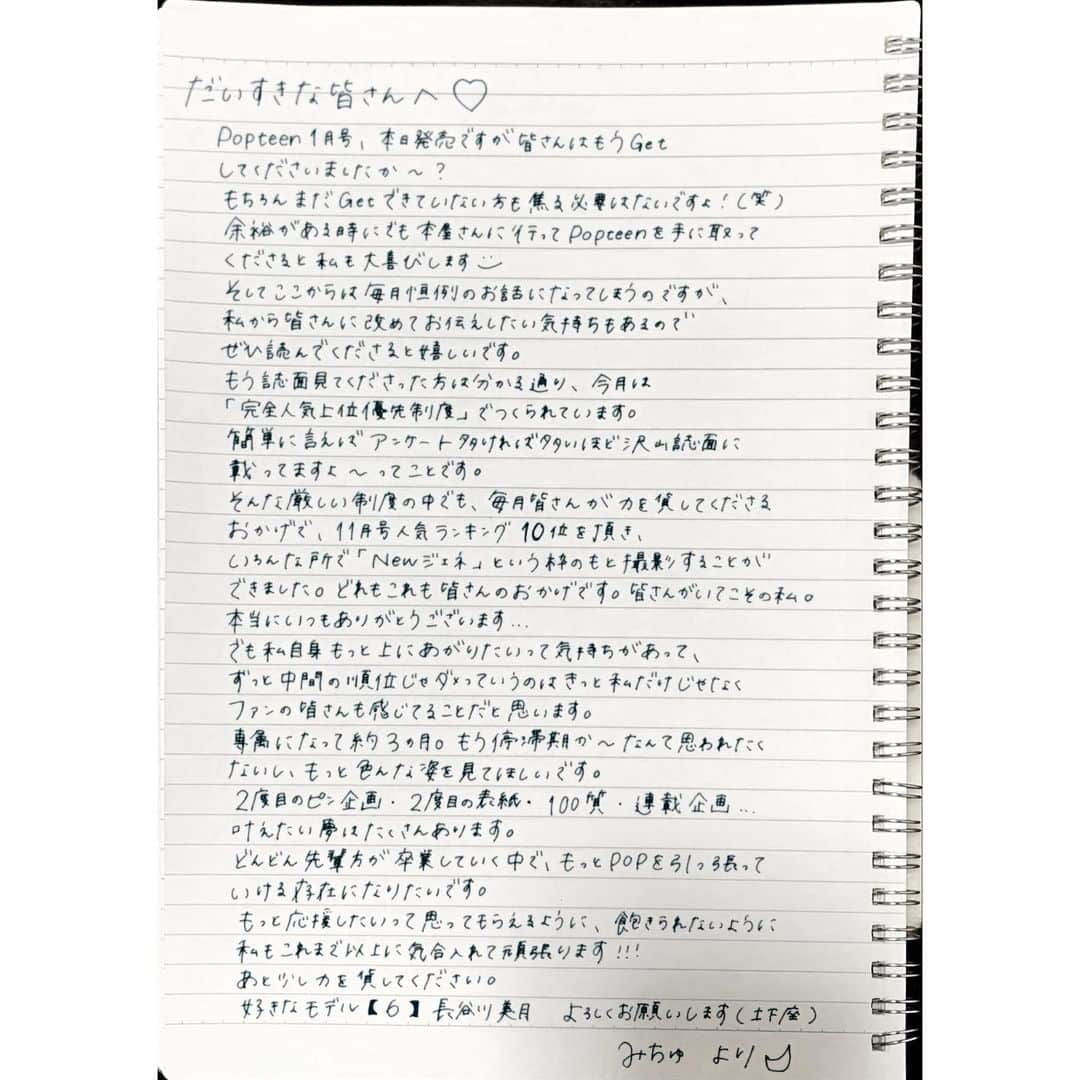 だいすきな皆さんへ♡
Popteen 1月号、本日発売ですが皆さんはもうGet
してくださいましたか〜?
もちろんまだGetできていない方も焦る必要はないですよ!(笑)
余裕がある時にでも本屋さんに行ってPopteenを手に取って
くださると私も大喜びします
そしてここからは毎月恒例のお話になってしまうのですが、
私から皆さんに改めてお伝えしたい気持ちもあるので
ぜひ読んでくださると嬉しいです。
もう誌面見てくださった方は分かる通り、今月は
「完全人気上位優先制度」でつくられています。
簡単に言えばアンケート多ければ多いほど沢山誌面に
載ってますよ〜ってことです。
そんな厳しい制度の中でも、毎月皆さんが力を貸してくださる
おかげで、11月号人気ランキング10位を頂き、
いろんな所で「Newジェネ」という枠のもと撮影することが
できました。どれもこれも皆さんのおかげです。皆さんがいてこその私。
本当にいつもありがとうございます...
でも私自身もっと上にあがりたいって気持ちがあって、
ずっと中間の順位じゃダメっていうのはきっと私だけじゃなく
ファンの皆さんも感じてることだと思います。
専属になって約3ヵ月。もう停滞期か〜なんて思われたく
ないし、もっと色んな姿を見てほしいです。
2度目のピン企画・2度目の表紙・100質・連載企画...
叶えたい夢はたくさんあります。
どんどん先輩方が卒業していく中で、もっとPOPを引っ張って
いける存在になりたいです。
もっと応援したいって思ってもらえるように、飽きられないように
私もこれまで以上に気合入れて頑張ります!!!
あと少し力を貸してください。
好きなモデル【6】長谷川美月 よろしくお願いします(土下座)
みちゅ より